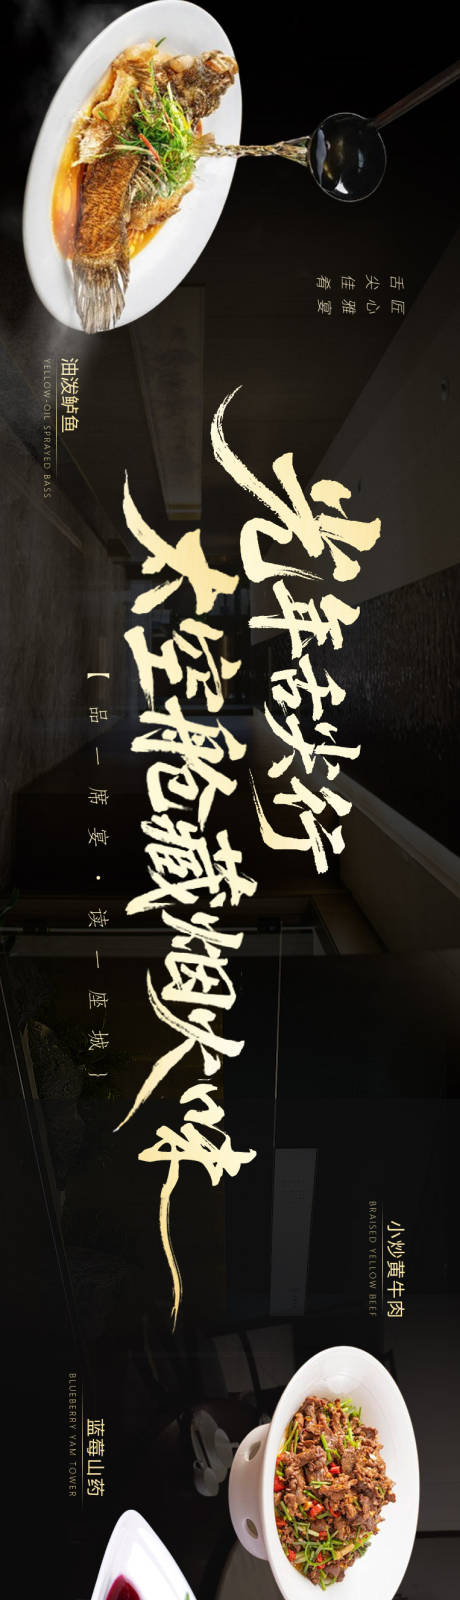 匠心雅宴
舌尖佳肴
光年舌尖行
太空舱藏烟火味
【品一席宴·读一座城】
油泼鲈鱼
YELLOW-OIL SPRAYED BASS
小炒黄牛肉
BRAISED YELLOW BEEF
蓝莓山药
BLUEBERRY YAM TOWER